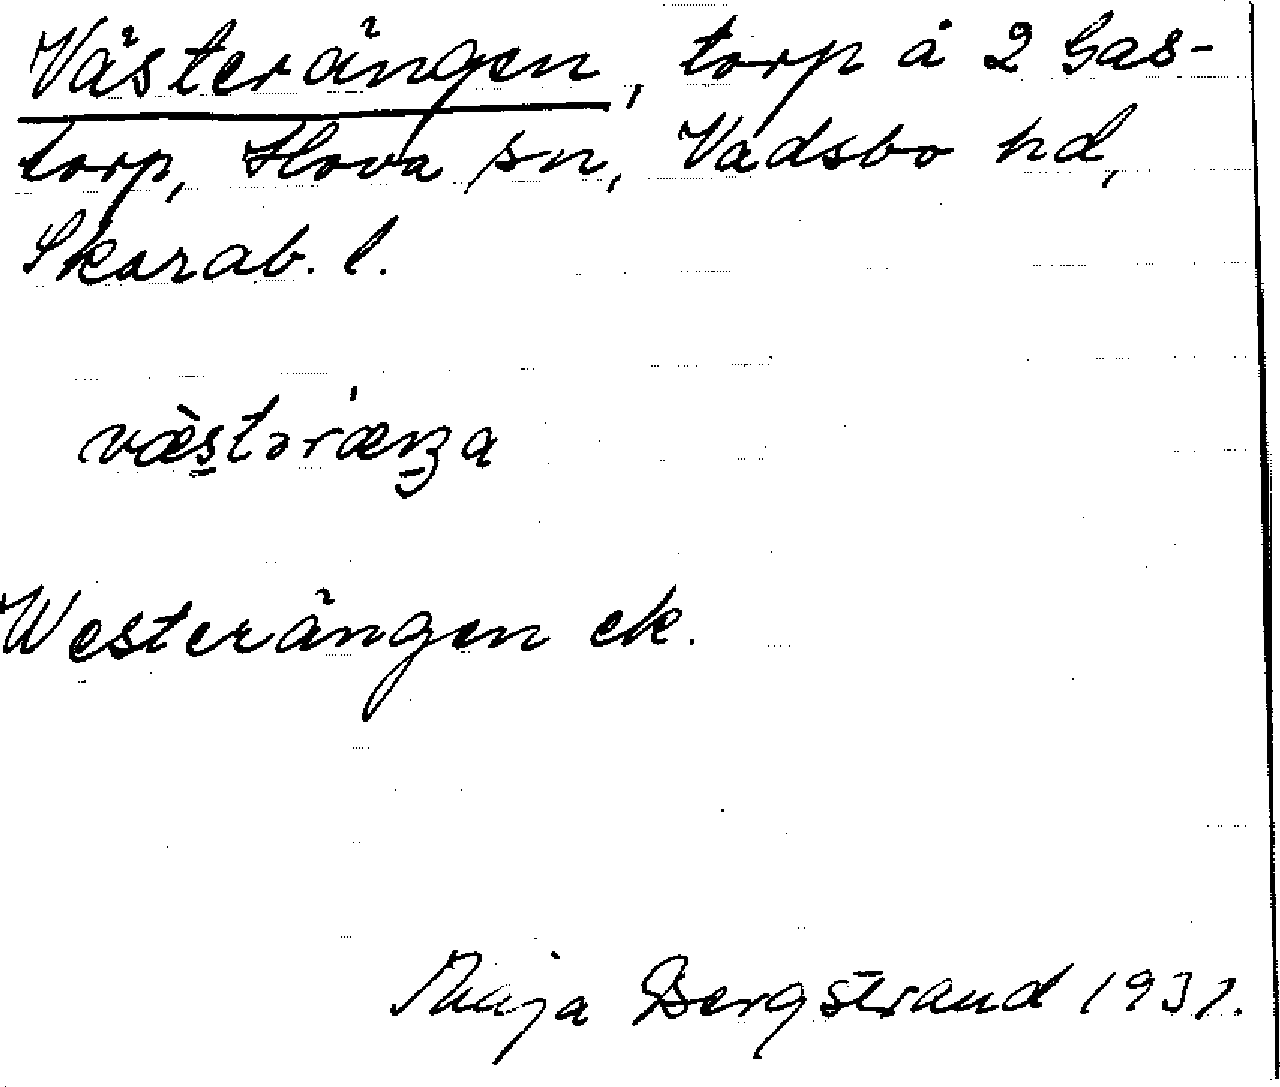 Västerängen, torp å 2 Gas-
torp, Hova sn, Vadsbo hd,
Skarab. l.
væ̀stərˈæŋa
Westerängen ek.
Maja Bergstrand 1931.